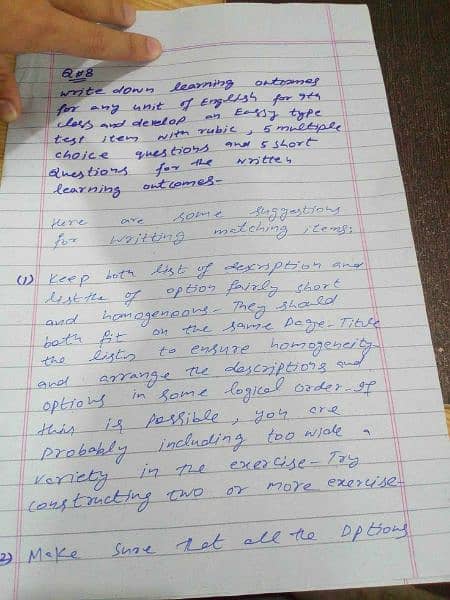 Q#8
write down learning outcomes
for any unit of English for 9th
class and develop an Eassy type
test item with rubic, 5 multiple
choice questions and 5 short
Questions for the written
learning outcomes-
Here are some suggestions
for writting matching items;
(1) Keep both list of description and
list the of option fairly short
and homogeneous- They should
both fit on the same Page- Title
the lists to ensure homogeneity
and arrange the descriptions and
options in some logical order- If
this is possible, you are
probably including too wide a
variety in the exercise- Try
constructing two or more exercise-
2) Make sure that all the Options